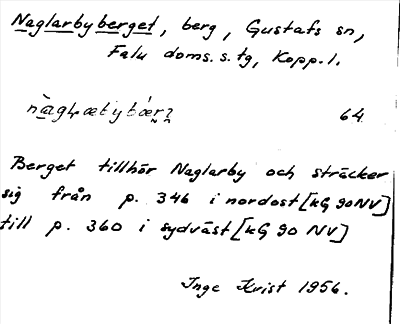 Naglarbyberget, berg, Gustafs sn,
Falu doms. s. tg, Kopp. l.
64.
Berget tillhör Naglarby och sträcker
sig från p. 346 i nordost [kG 90 NV]
till p. 360 i sydväst [kG 90 NV]
Inge Kvist 1956.